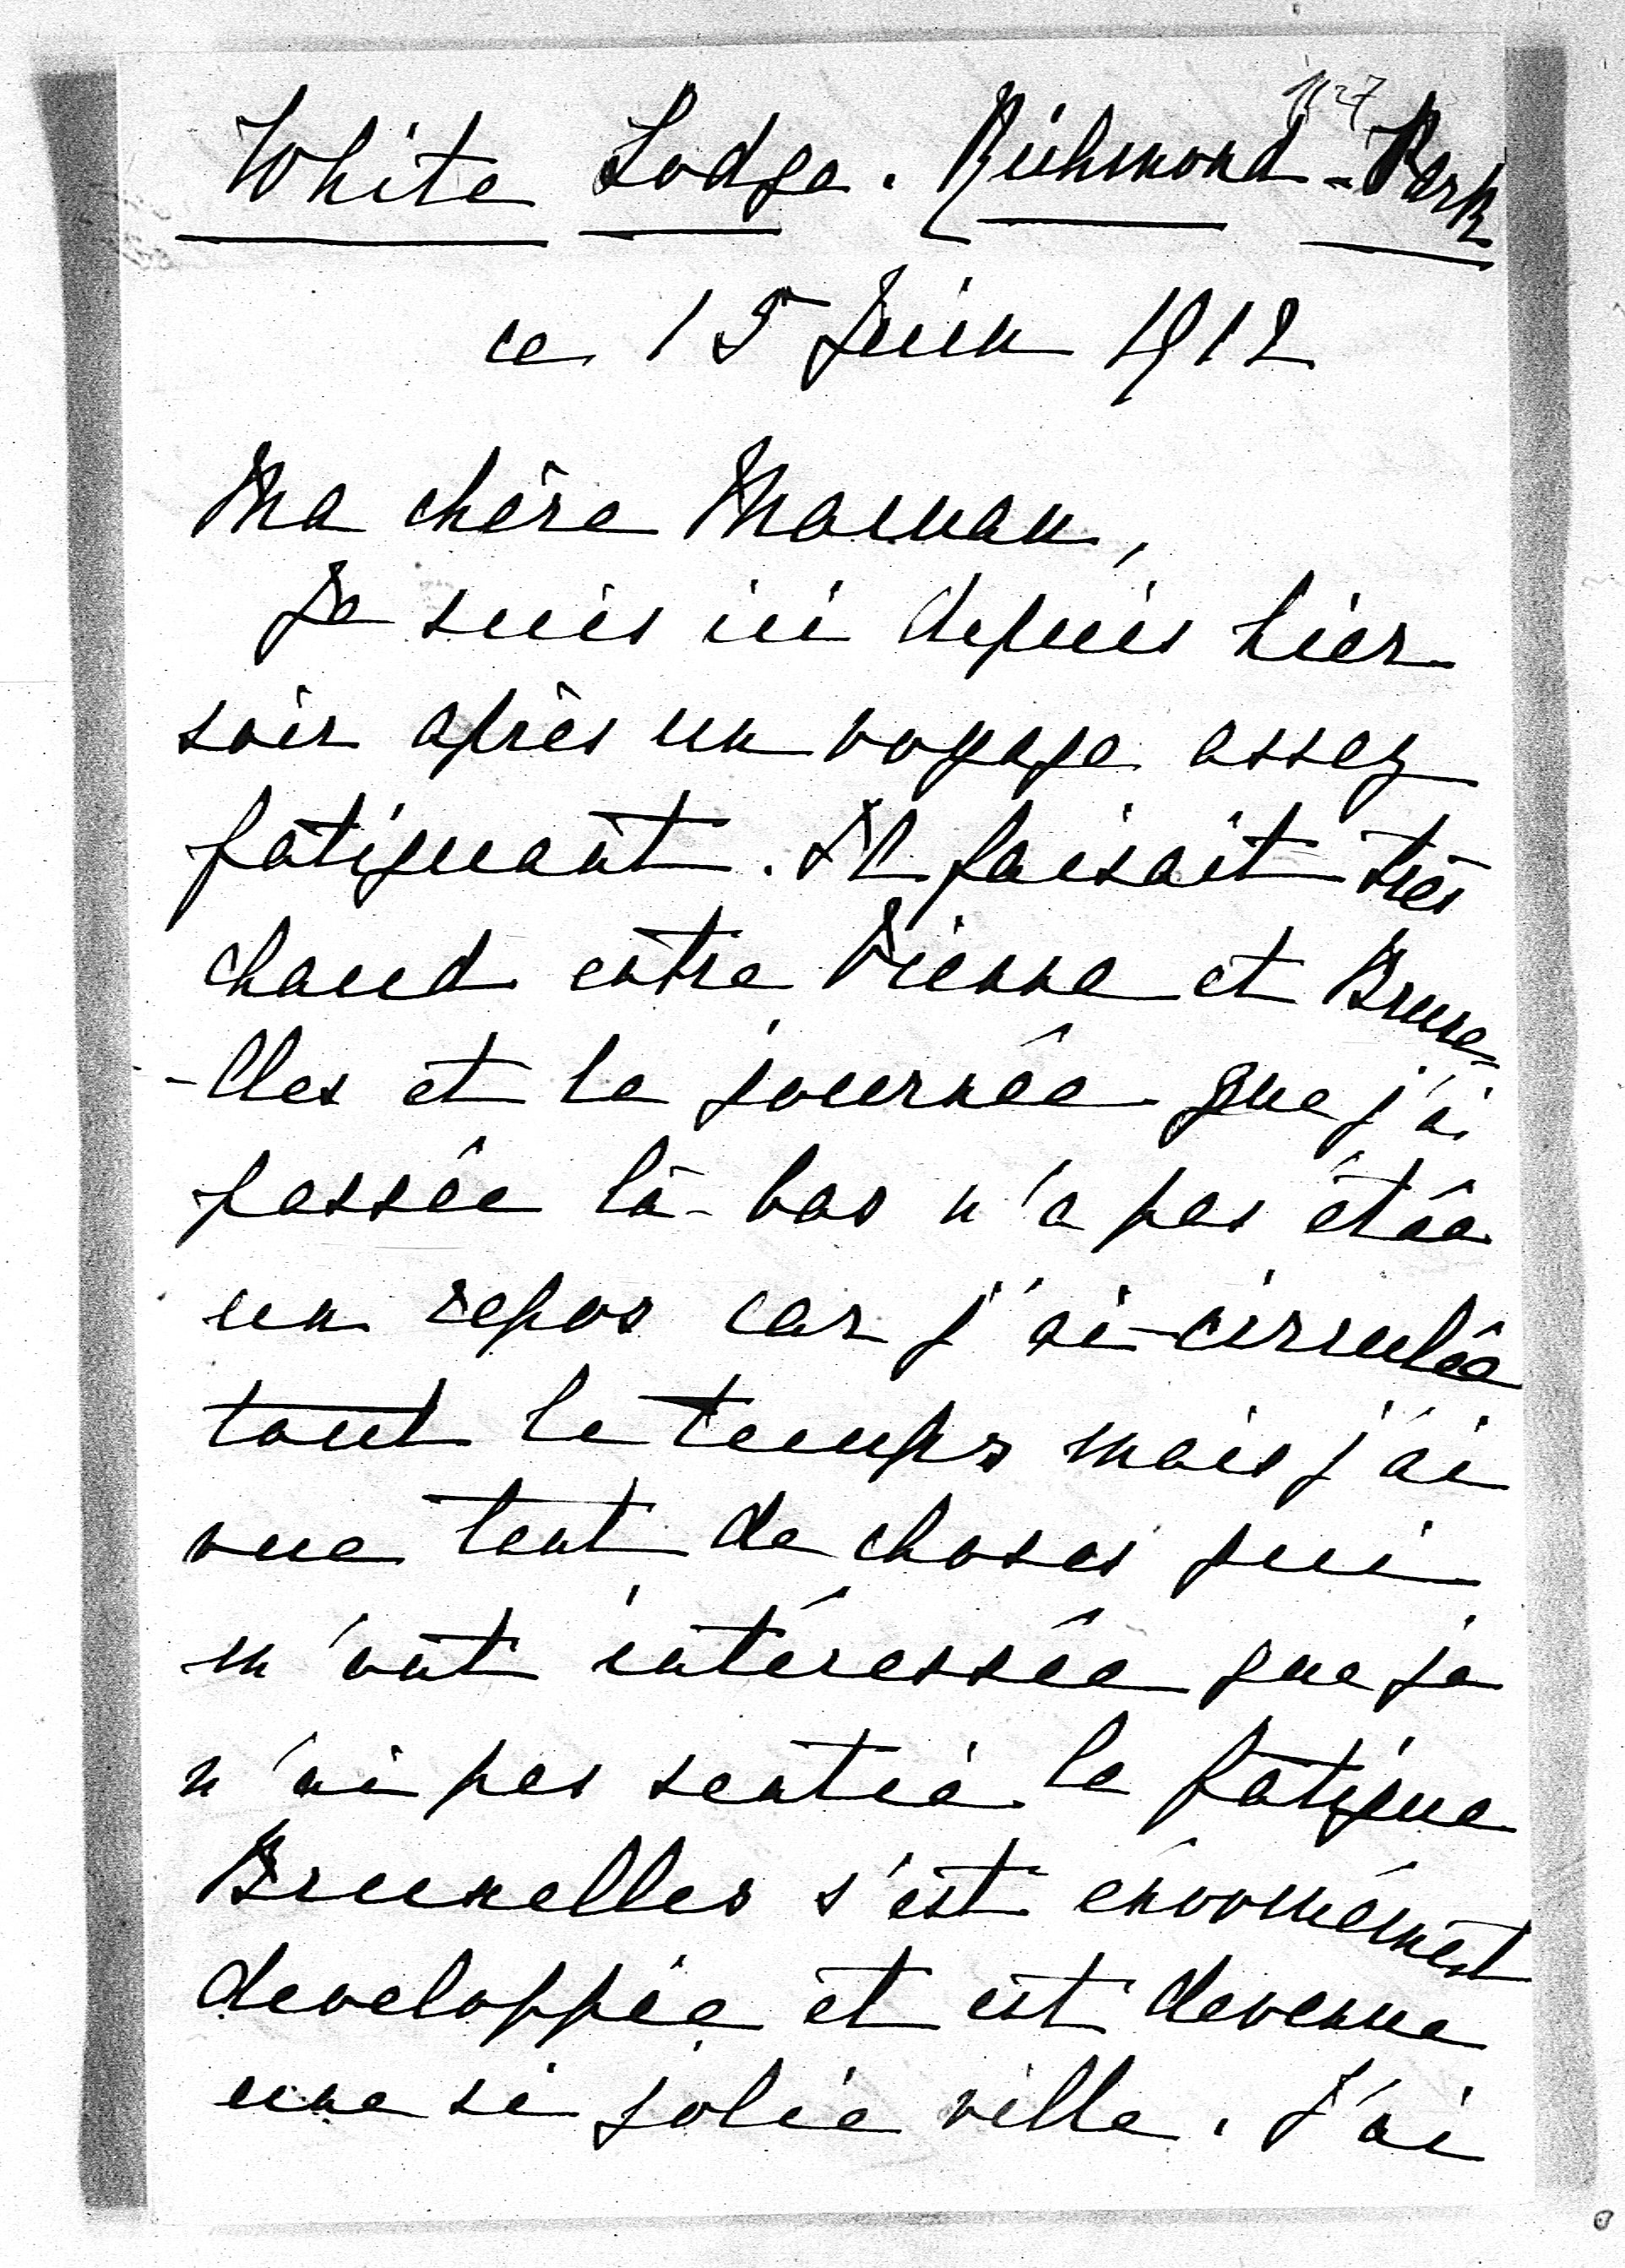 White Lodge. Richmond-Park
ce 15 Juin 1912
Ma chère Maman,
Je suis ici depuis hier
soir après un voyage assez
fatiguant. Il faisait très
chaud entre Vienne et Bruxe-
-lles et la journée que j'ai
passée là-bas n'a pas étée
un repos car j'ai circulée
tout le temps mais j'ai
vue tant de choses qui
m'ont intéressée que je
n'ai pas sentie la fatigue
Bruxelles s'est énormément
developpée et est devenue
une si jolie ville. J'ai